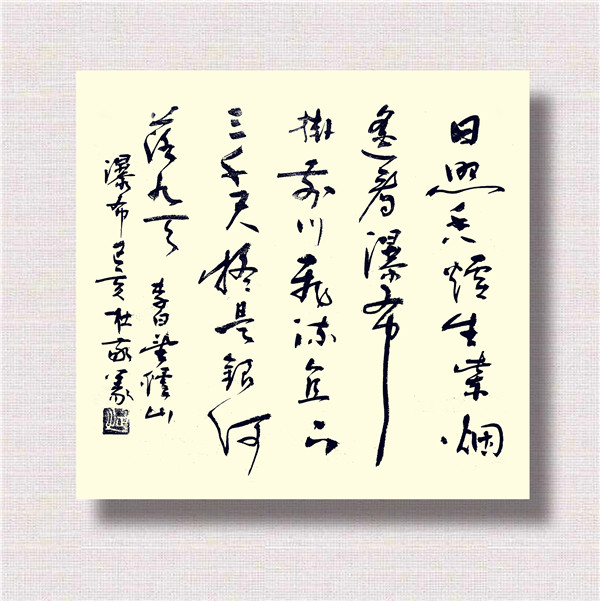 日照香爐生紫烟
遥看瀑布
掛前川飛流直下
三千尺疑是銀河
落九天 李白望廬山
瀑布 己亥杜敬義